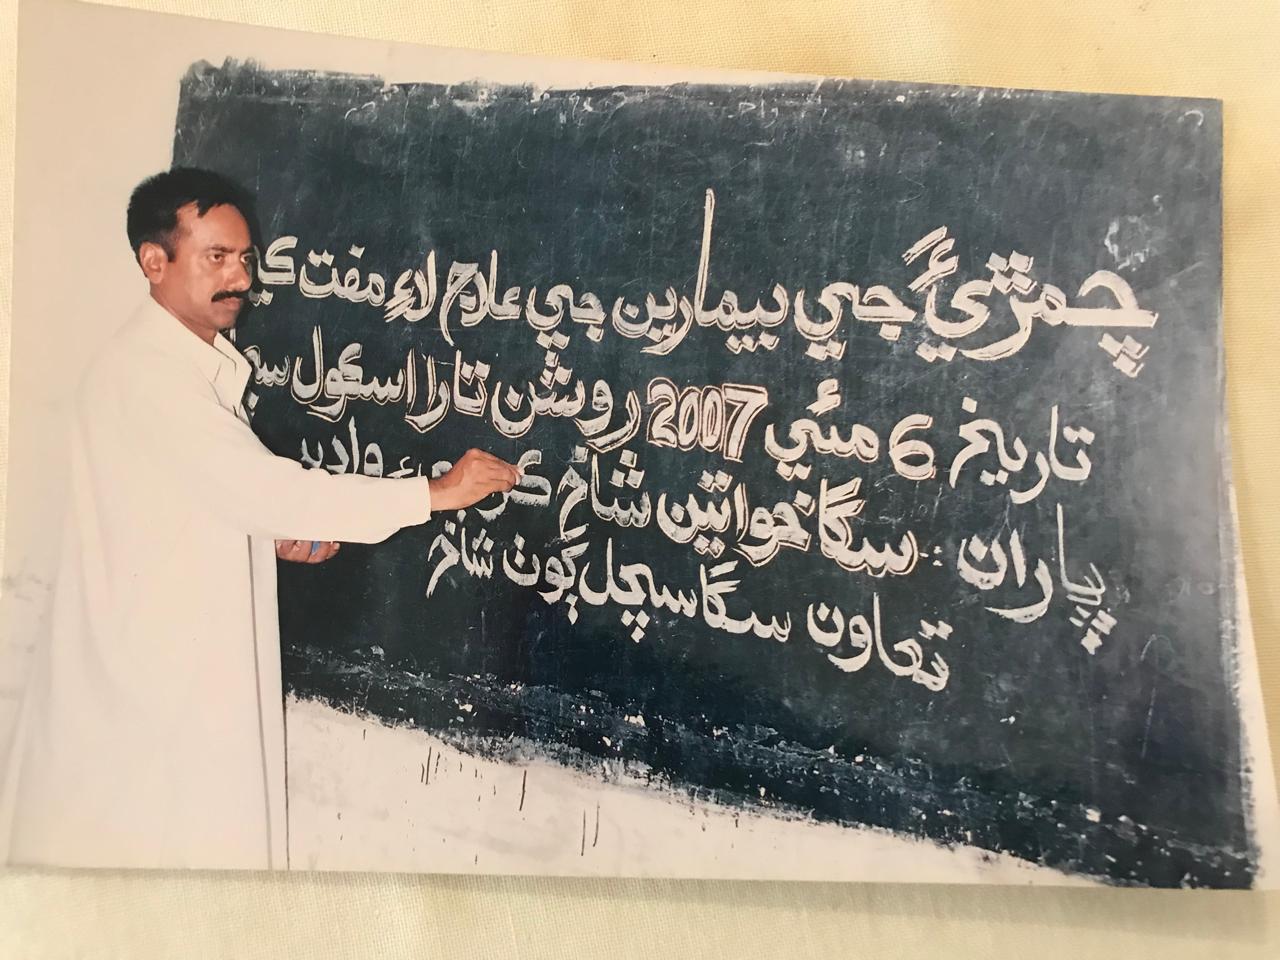 چمڙيءَ جي بيمارين جي علاج لاءِ مفت
تاريخ 6 مئي 2007 روشن تارا اسڪول
پاران : سگا خواتين شاخ
تعاون سگا سچل ڳوٺ شاخ